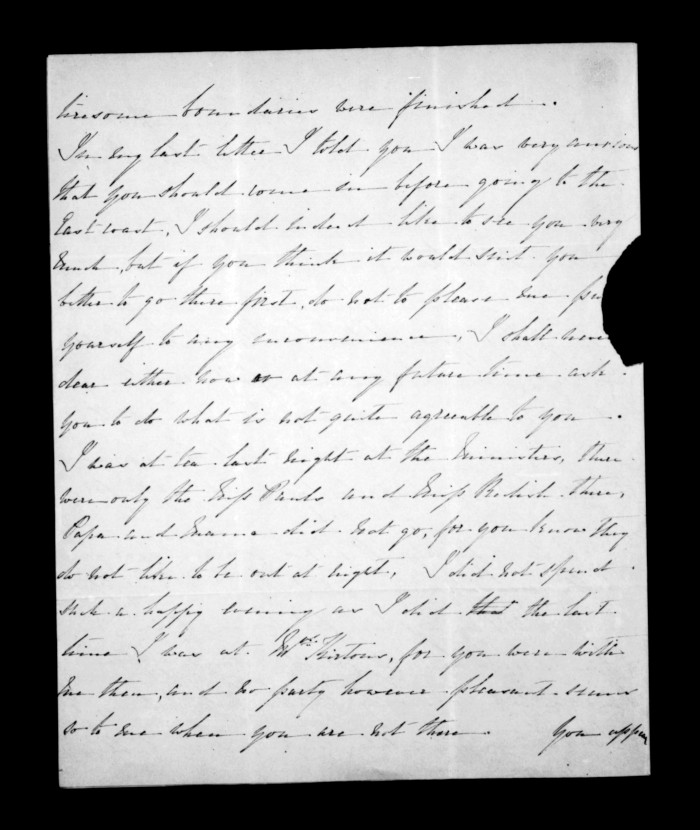 tiresome boundaries were finished.
In my last letter I told you I was very anxious
that you should come in before going to the
East coast, I should indeed like to see you very
much, but if you think it would suit you
better to go there first, do not to please me
yourself to any inconvenience, I shall never
dear either now or at any future time ask
you to do what is not quite agreeable to you.
I was at tea last night at the Ministers, there
were only the Miss Pauls and Miss there,
Papa and Mama did not go, for you know they
do not like to be out at night, I did not spend
such a happy evening as I did the last
time I was at Mrs. Kirtons, for you were with
me then, and no party however pleasant seems
so to me when you are not there. You appear